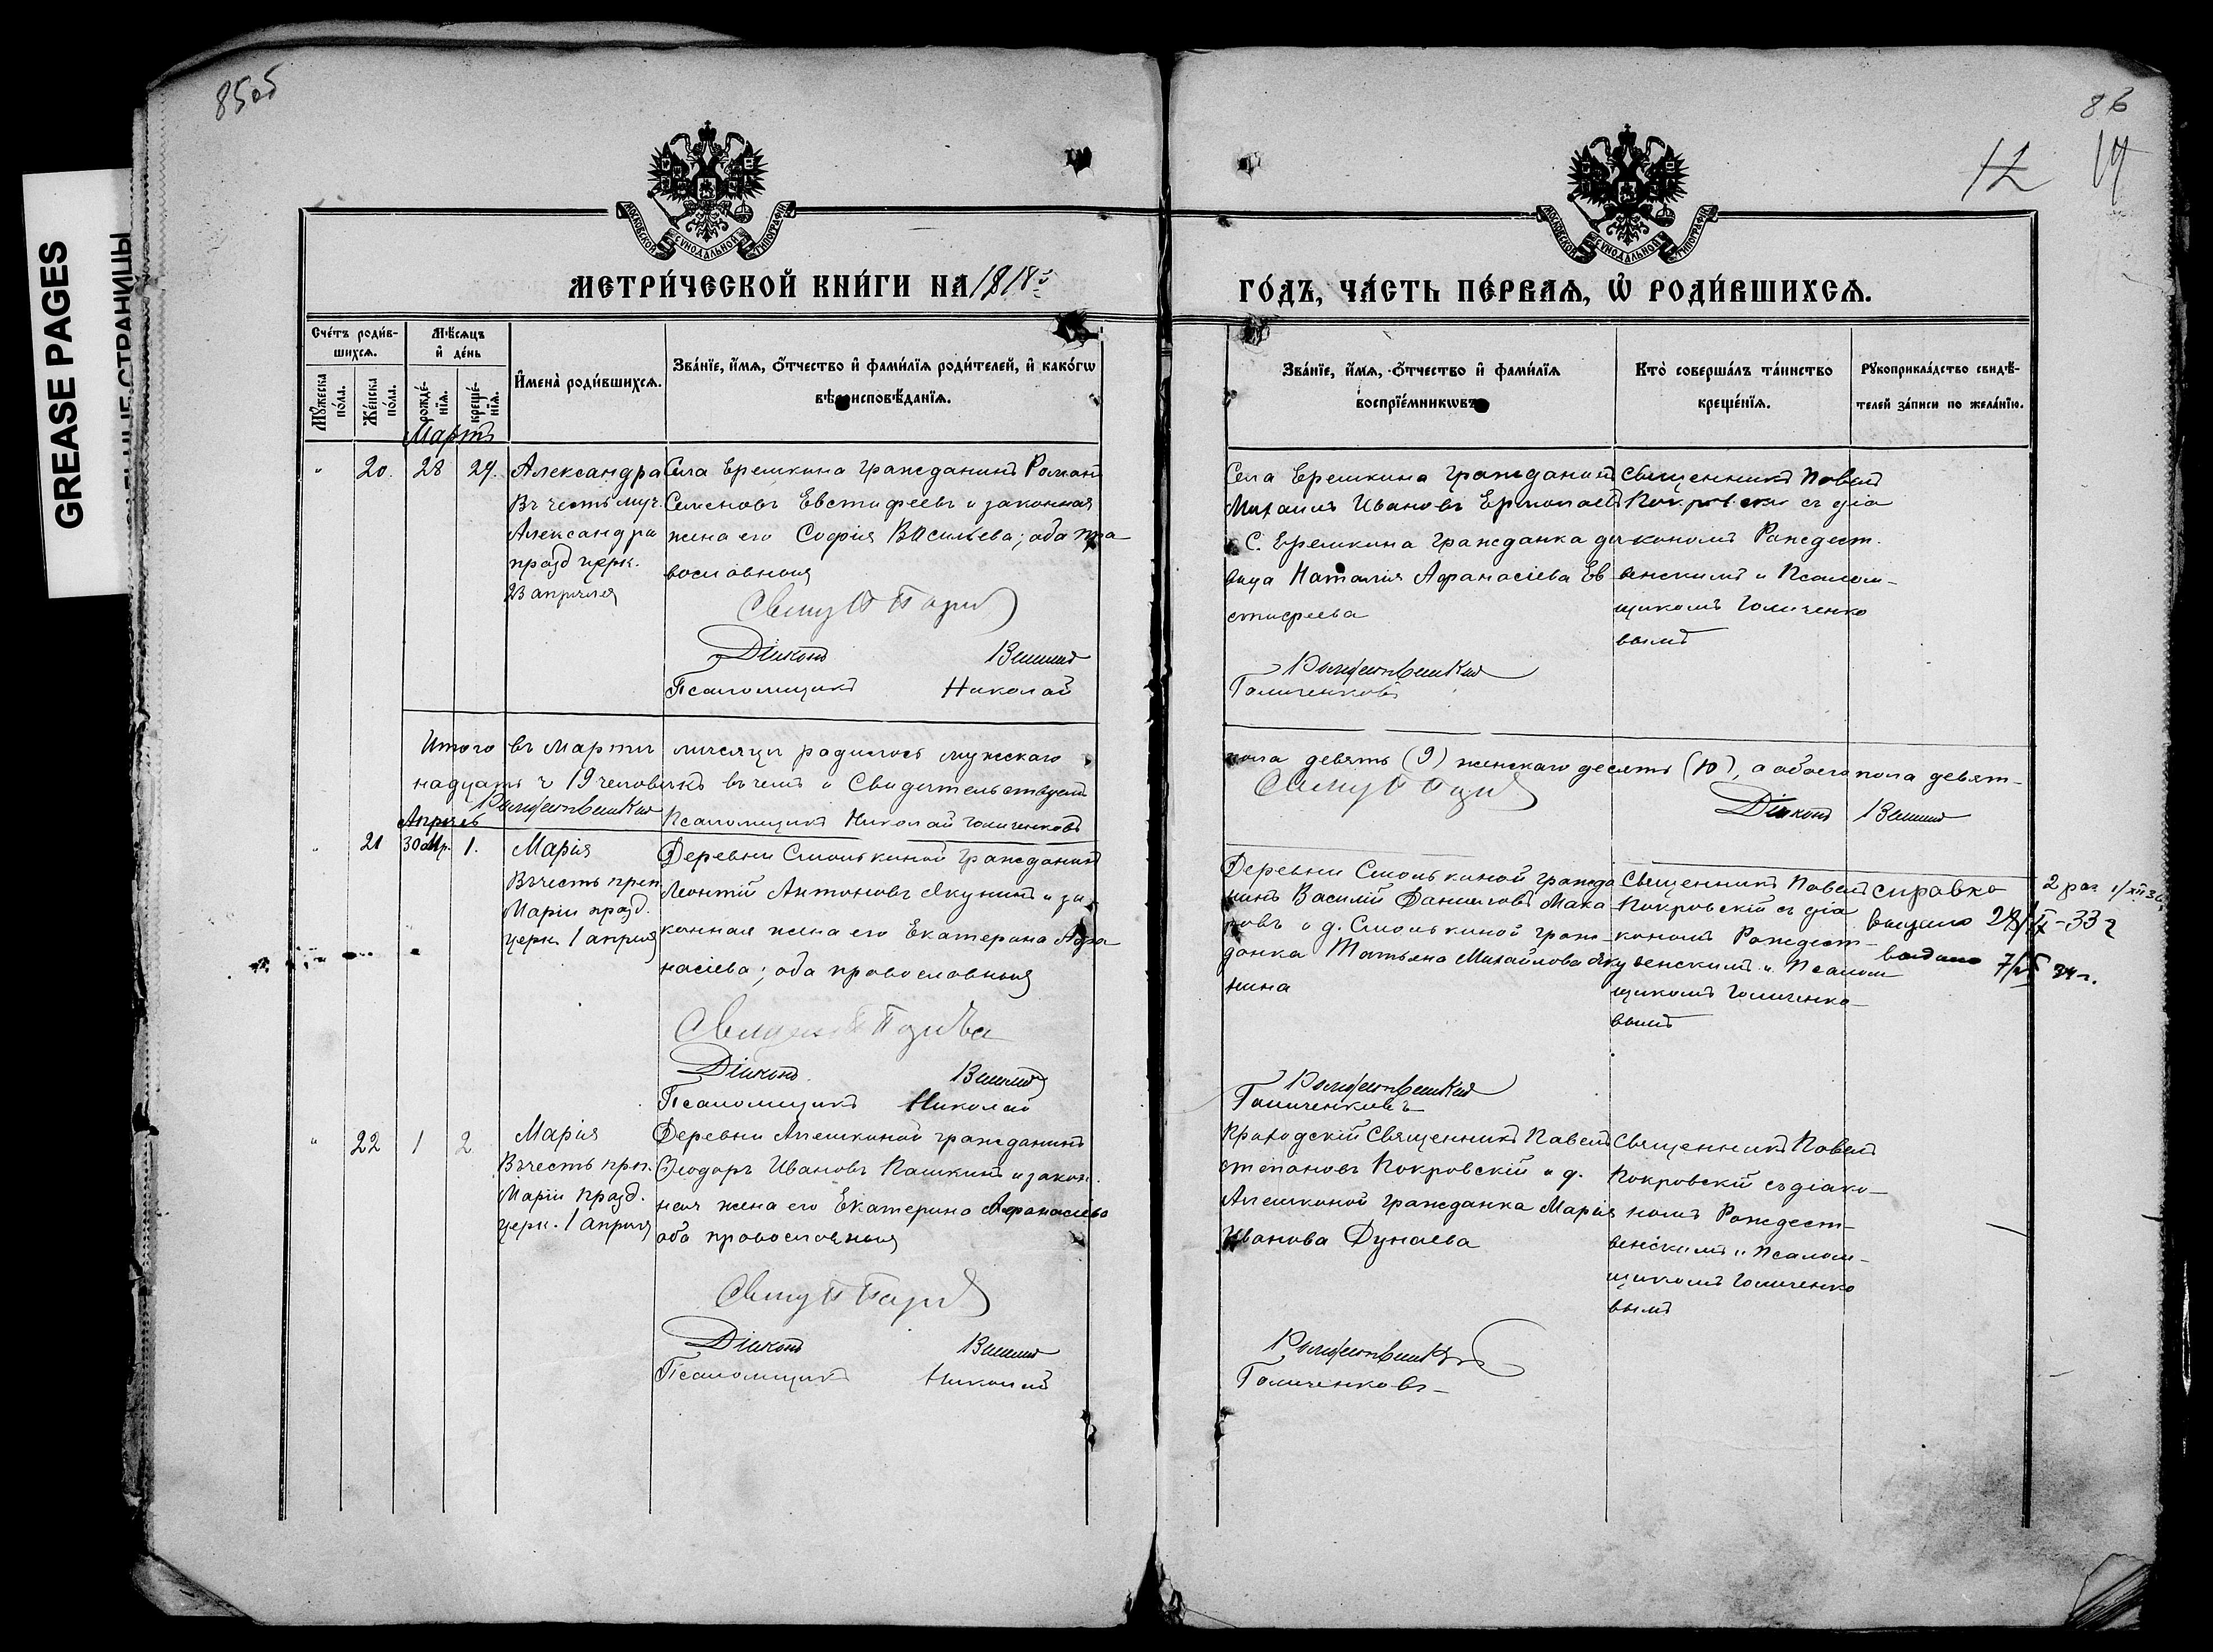 85об
86
12 14
GREASE PAGES
МОСКОВСКОЙ СѴНОДАЛЬНОЙ ТИПОГРАФІИ
МОСКОВСКОЙ СѴНОДАЛЬНОЙ ТИПОГРАФІИ
МЕТРИ́ЧЕСКОЙ КНИ́ГИ НА 1918й
ГО́ДЪ, ЧА́СТЬ ПЕ́РВАѦ, Ѡ҆ РОДИ́ВШИХСѦ.
Сче́тъ роди́в-
шихсѧ.
Мꙋ́жеска по́ла.
Же́нска по́ла.
Мѣ́сѧцъ
и҆ де́нь
рожде́-
нїѧ.
креще́-
нїѧ.
И҆мена̀ роди́вшихсѧ.
Зва́нїе, и҆́мѧ, ѻ҆́тчество и҆ фами́лїѧ роди́телей, и҆ како́гѡ
вѣроисповѣ́данїѧ.
Зва́нїе, и҆́мѧ, ѻ҆́тчество и҆ фами́лїѧ
воспрїе́мникѡвъ
Кто̀ соверша́лъ та́инство
креще́нїѧ.
Рꙋкоприкла́дство свидѣ́-
телей за́писи по жела́нїю.
Мартъ
" 20. 28 29.
Александра
Въ честь муч.
Александры
празд церк.
23 апрѣля
Села Еремкина гражданинъ Романъ
Семеновъ Евстифеевъ и законная
жена его Софія Васильева; оба пра
вославныя
Діаконъ
Псаломщикъ Николай
Села Еремкина гражданинъ
Михаилъ Ивановъ Ермолаевъ
и С. Еремкина гражданка дѣ
вица Наталія Афанасіева Ев
стифеева
Рождественскій
Голиченковъ
Священникъ Павелъ
Покровскій съ діа
кономъ Рождест.
венскимъ и Псалом-
щикомъ Голиченко
вымъ
Итого въ Мартѣ мѣсяцѣ родилось мужскаго
пола девять (9) женскаго десять (10), а обоего пола девят-
надцать 19 человѣкъ въ чемъ и Свидѣтельствуемъ
Діаконъ
Рождественскій
Псаломщикъ Николай Голиченковъ
Апрѣль
" 21 30 Мр. 1.
Марія
Въ честь преп
Маріи празд.
церк. 1 апрѣля
Деревни Смолькиной гражданинъ
Леонтій Антоновъ Якунинъ и за
конная жена его Екатерина Афа
насіева; оба православныя
Діаконъ
Псаломщикъ Николай
Деревни Смолькиной гражда
нинъ Василій Даниловъ Мака
ровъ и д. Смолькиной граж-
данка Татьяна Михайлова Яку
нина
Рождественскій
Голиченковъ
Священникъ Павелъ
Покровскій съ діа
кономъ Рождест-
венскимъ и Псалом
щикомъ Голиченко-
вымъ
справка
выдано 28/IX-33 г
выдано 34 г.
2 раз
" 22 1 2
Марія
Въ честь прп.
Маріи празд.
церк. 1 апрѣля
Деревни Алешкиной гражданинъ
Ѳеодоръ Ивановъ Пашкинъ и закон.
ная жена его Екатерина Афанасіева
оба православныя
Діаконъ
Псаломщикъ Николай
Приходскій Священникъ Павелъ
Степановъ Покровскій и д.
Алешкиной гражданка Марія
Иванова Дунаева
Рождественскій
Голиченковъ
Священникъ Павелъ
Покровскій съ діако-
номъ Рождест-
венскимъ и Псалом-
щикомъ Голиченко
вымъ